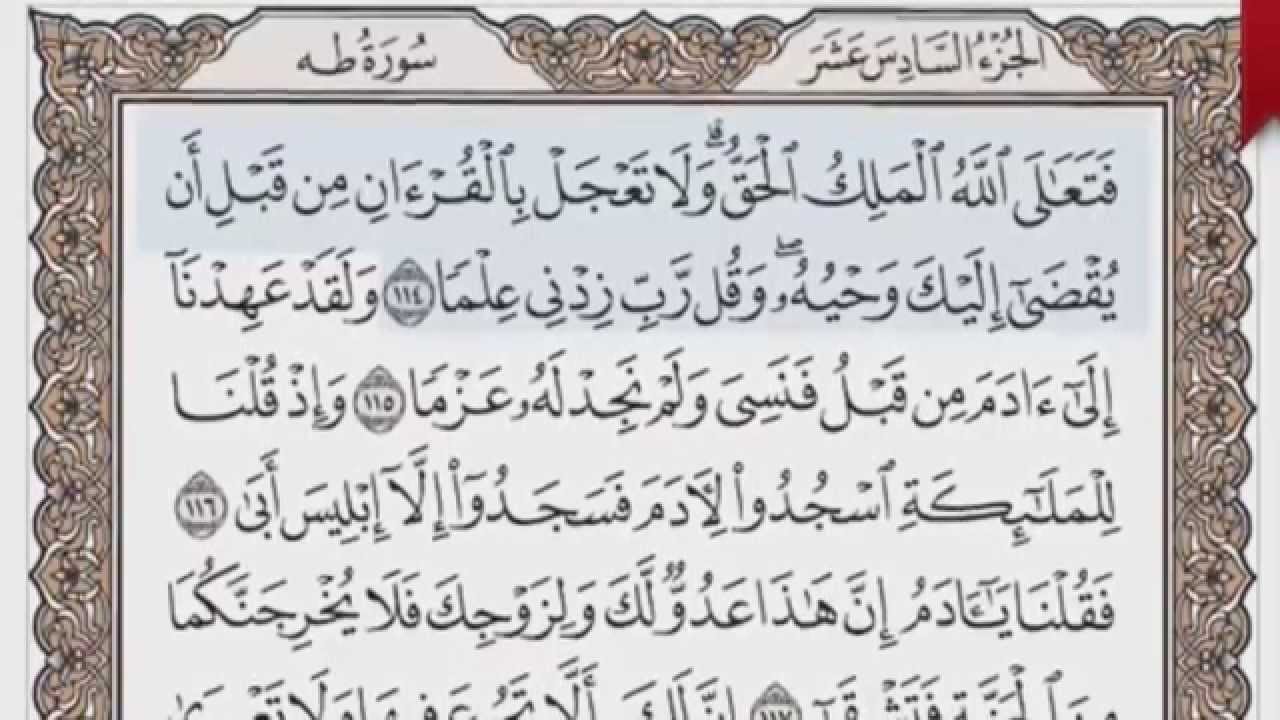 الجزء السادس عشر
سورة طه
فَتَعَٰلَى ٱللَّهُ ٱلْمَلِكُ ٱلْحَقُّ ۗ وَلَا تَعْجَلْ بِٱلْقُرْءَانِ مِن قَبْلِ أَن
يُقْضَىٰٓ إِلَيْكَ وَحْيُهُۥ ۖ وَقُل رَّبِّ زِدْنِى عِلْمًا ١١٤ وَلَقَدْ عَهِدْنَآ
إِلَىٰٓ ءَادَمَ مِن قَبْلُ فَنَسِىَ وَلَمْ نَجِدْ لَهُۥ عَزْمًا ١١٥ وَإِذْ قُلْنَا
لِلْمَلَٰٓئِكَةِ ٱسْجُدُوا۟ لِـَٔادَمَ فَسَجَدُوٓا۟ إِلَّآ إِبْلِيسَ أَبَىٰ ١١٦
فَقُلْنَا يَٰٓـَٔادَمُ إِنَّ هَٰذَا عَدُوٌّ لَّكَ وَلِزَوْجِكَ فَلَا يُخْرِجَنَّكُمَا
مِنَ ٱلْجَنَّةِ فَتَشْقَىٰٓ ١١٧ إِنَّ لَكَ أَلَّا تَجُوعَ فِيهَا وَلَا تَعْرَىٰ